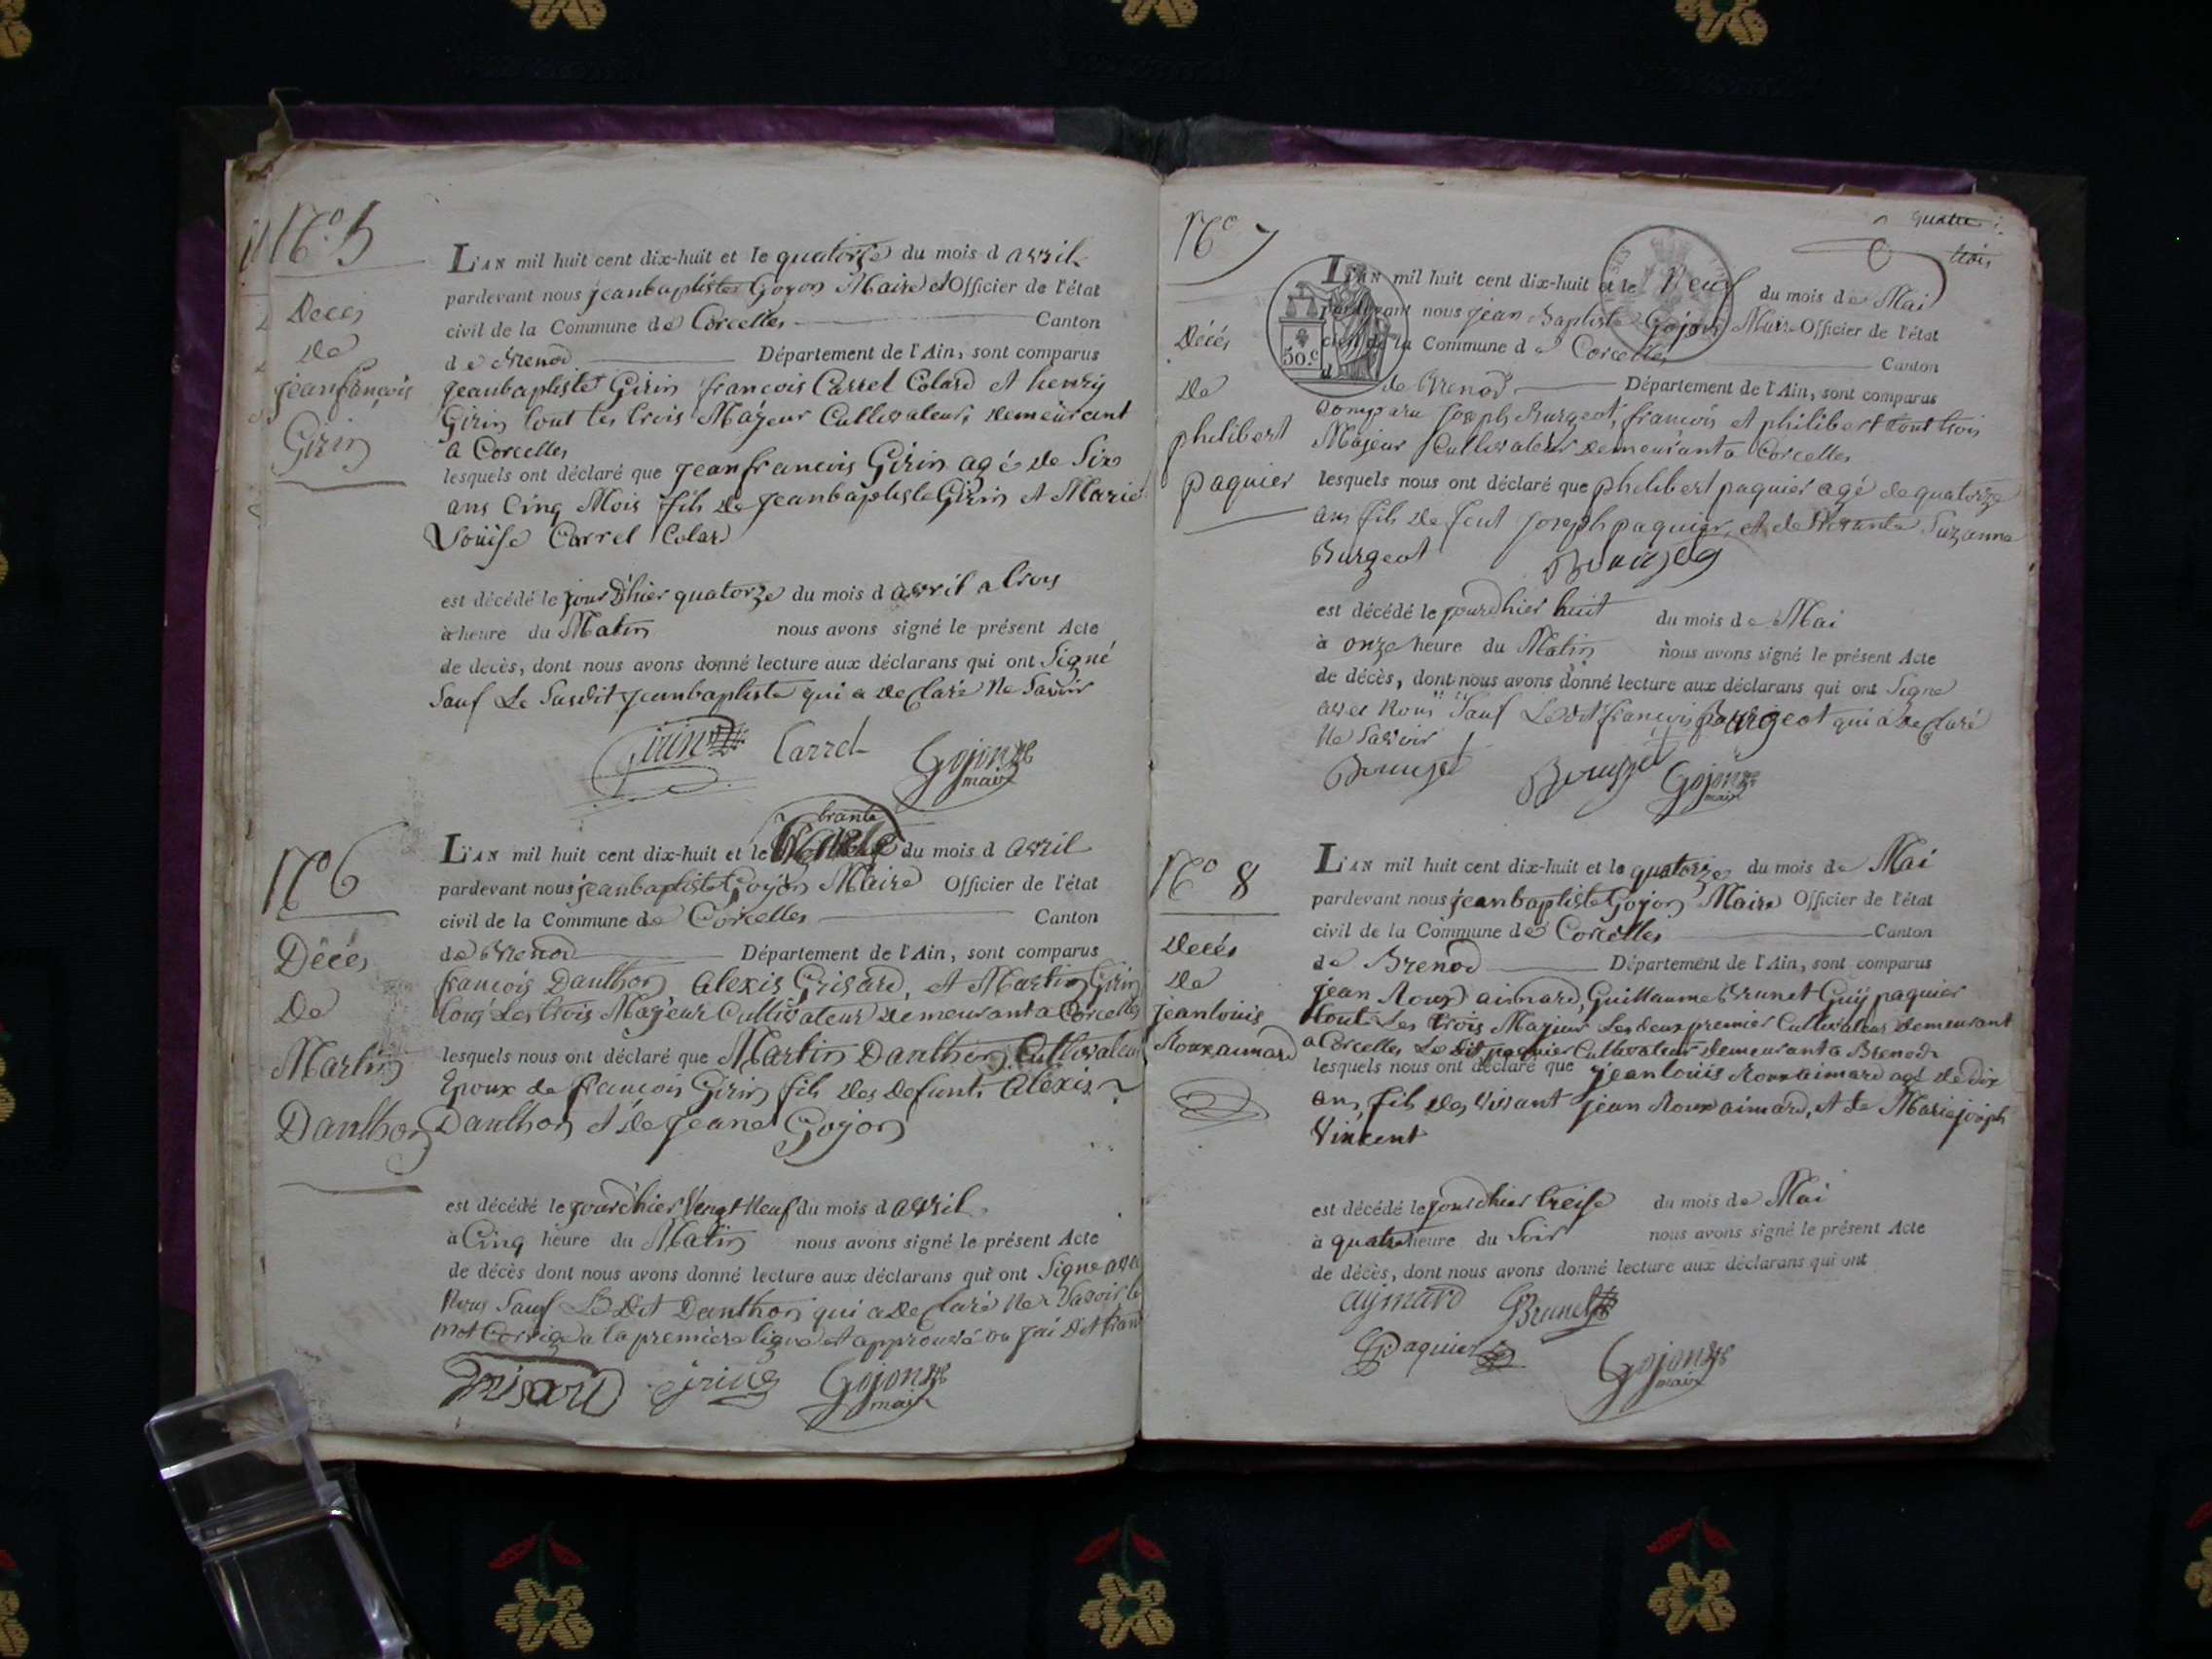 N.º 5
Deces
de
jeanfrançois
Girin
L'AN mil huit cent dix-huit et le quatorze du mois d avril
pardevant nous jeanbaptiste Gojon Maire et Officier de l'état
civil de la Commune de Corcelles Canton
de Brenod Département de l'Ain, sont comparus
jeanbaptiste Girin françois Carrel Colard et henry
Girin tout les trois Majeur Cultivateur, demeurant
a Corcelles
lesquels ont déclaré que jeanfrancois Girin agé de Six
ans Cinq Mois fils de jeanbaptiste Girin et Marie
Louïse Carrel Colard
est décédé le jour d'hier quatorze du mois d avril a trois
à heure du Matin nous avons signé le présent Acte
de decès, dont nous avons donné lecture aux déclarans qui ont Signé
Sauf Le Susdit jeanbaptiste qui a declaré ne Savoir
Girin Carrel Gojon
maire
N.º 6
Décés
De
Martin
Danthon
trante
L'AN mil huit cent dix-huit et le du mois d avril
pardevant nous jeanbaptiste Gojon Maire Officier de l'état
civil de la Commune de Corcelles Canton
de Brenod Département de l'Ain, sont comparus
françois Danthon, Alexis Grisard, et Martin Girin
tous Les trois Majeur Cultivateur demeurant a Corcelles
lesquels nous ont déclaré que Martin Danthon Cultivateur
Epoux de françois Girin fils des defunts Alexis
Danthon et de jeane Gojon
est décédé le jourd'hier Vengt Neuf du mois d avril
à Cinq heure du Matin nous avons signé le présent Acte
de décès dont nous avons donné lecture aux déclarans qui ont Signe avec
Nous Sauf Le Dit Danthon qui a declaré ne Savoir le
mot Corrigé a la premiere ligne et approuvé ou jai Dit trante
Grisard Girin Gojon
maire
quatre
trois
N.º 7
Décés
de
philibert
paquier
50.c
L'AN mil huit cent dix-huit et le Neuf du mois de Mai
pardevant nous jean Baptiste Gojon Maire Officier de l'état
civil de la Commune d e Corcelles
Canton
de Brenod Département de l'Ain, sont comparus
Comparu Joseph Burgeot, françois et philibert tout trois
Majeur Cultivateur demeurant a Corcelles
lesquels nous ont déclaré que philibert paquier agé de quatorze
ans fils de feut Joseph paquier, et de Vivante Suzanne
Burgeot
est décédé le jourdhier huit du mois de Mai
à onze heure du Matin nous avons signé le présent Acte
de décès, dont nous avons donné lecture aux déclarans qui ont Signe
avec Nous Sauf Ledit françois Bourgeot qui a declaré
Ne Savoir
Gojon
maire
N.º 8
Decés
de
jeanlouis
Rouxaimard
L'AN mil huit cent dix-huit et le quatorze du mois de Mai
pardevant nous jeanbaptiste Gojon Maire Officier de l'état
civil de la Commune de Corcelles Canton
de Brenod Département de l'Ain, sont comparus
jean Roux aimard, Guillaume Brunet Guÿ paquier
tout Les trois Majeur Les deux premier Cultivateur demeurant
a Corcelles Le dit paquier Cultivateur demeurant a Brenod
lesquels nous ont déclaré que jeanlouis Rouxaimard agé de dix
ans, fils des vivant jean Roux aimard, et de Marie joseph
Vincent
est décédé le jourdhier treise du mois de Mai
à quatre heure du Soir nous avons signé le présent Acte
de décès, dont nous avons donné lecture aux déclarans qui ont
aymard Brunet
Paquier Gojon
maire